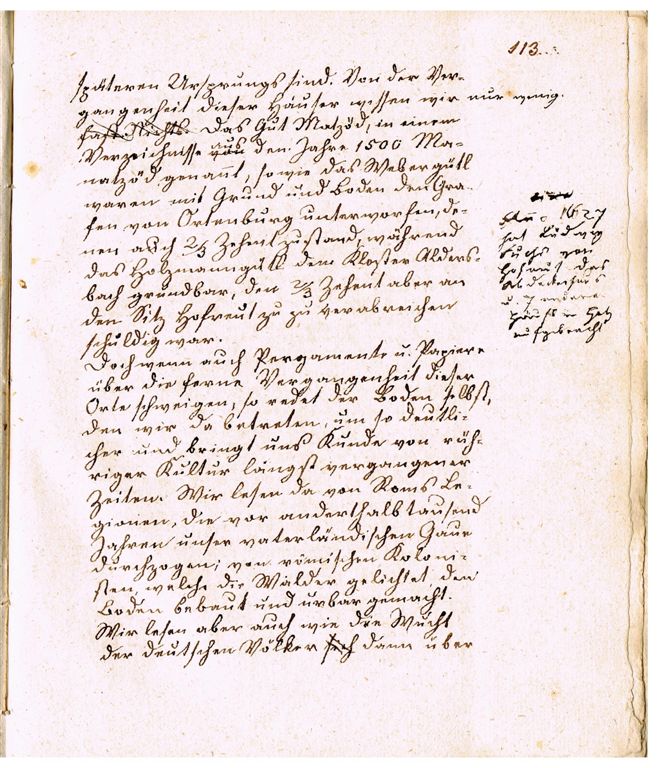 113.
späteren Ursprungs sind. Von der Ver-
gangenheit dieser Häuser wissen wir nur wenig.
fast Nichts. Das Gut Matzöd, in einem
Verzeichnisse aus dem Jahre 1500 Ma-
natzöd genannt, sowie das Webergütl
waren mit Grund und Boden den Gra-
fen von Ortenburg unterworfen, de-
nen auch 2/3 Zehent zustand, während
das Holzmanngütl dem Kloster Alders-
bach grundbar, den 2/3 Zehent aber an
den Sitz Hofreut zu verabreichen
schuldig war.
Doch wenn auch Pergamente u. Papiere
über die ferne Vergangenheit dieser
Orte schweigen, so redet der Boden selbst,
den wir da betreten, um so deutli-
cher und bringt uns Kunde von rüh-
riger Kultur längst vergangener
Zeiten. Wir lesen da von Roms Le-
gionen, die vor anderthalbtausend
Jahren unser vaterländischen Gaue
durchzogen; von römischen Koloni-
sten, welche die Wälder gelichtet, den
Boden bebaut und urbar gemacht.
Wir lesen aber auch wie die Wucht
der deutschen Völker sich dann über
1627
hat Ludwig
Fuchs von
das
u. 7 andere